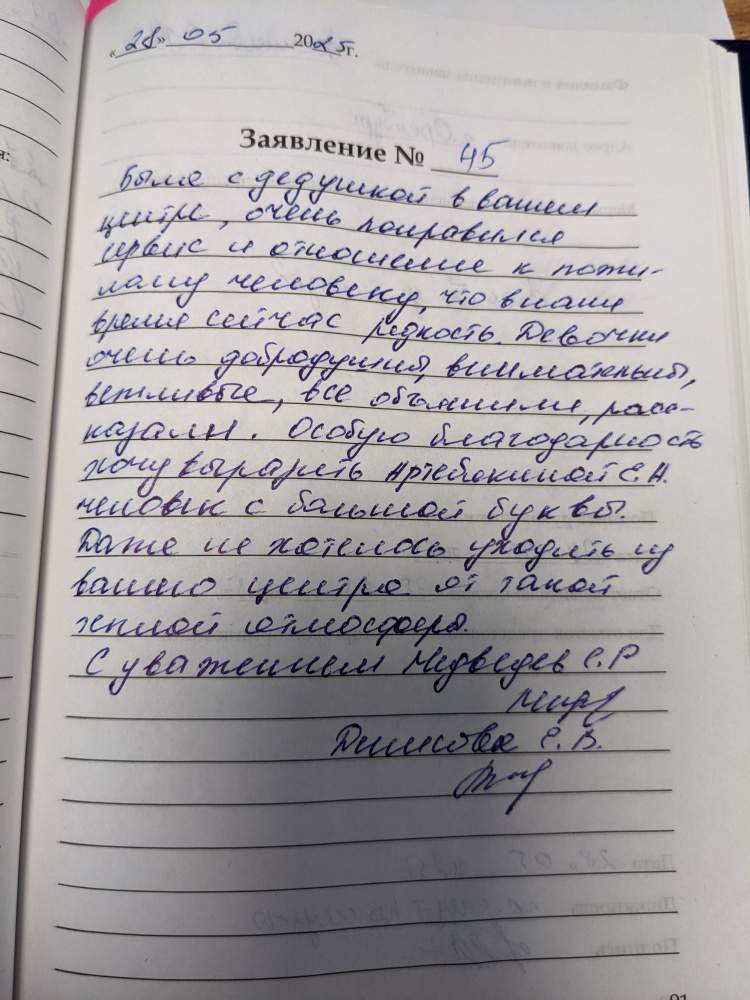 « 28 » 05 2025г.
Заявление № 45
Была с дедушкой в вашем
центре, очень понравился
сервис и отношение к пожи-
лому человеку, что в наше
время сейчас редкость. Девочки
очень добродушны, внимательны,
вежливые, все объяснили, расс-
казали. Особую благодарность
хочу выразить Артебякиной Е.А.
человек с большой буквы.
Даже не хотелось уходить из
вашего центра от такой
теплой атмосферы.
С уважением Медведев С.Р
Е.В.